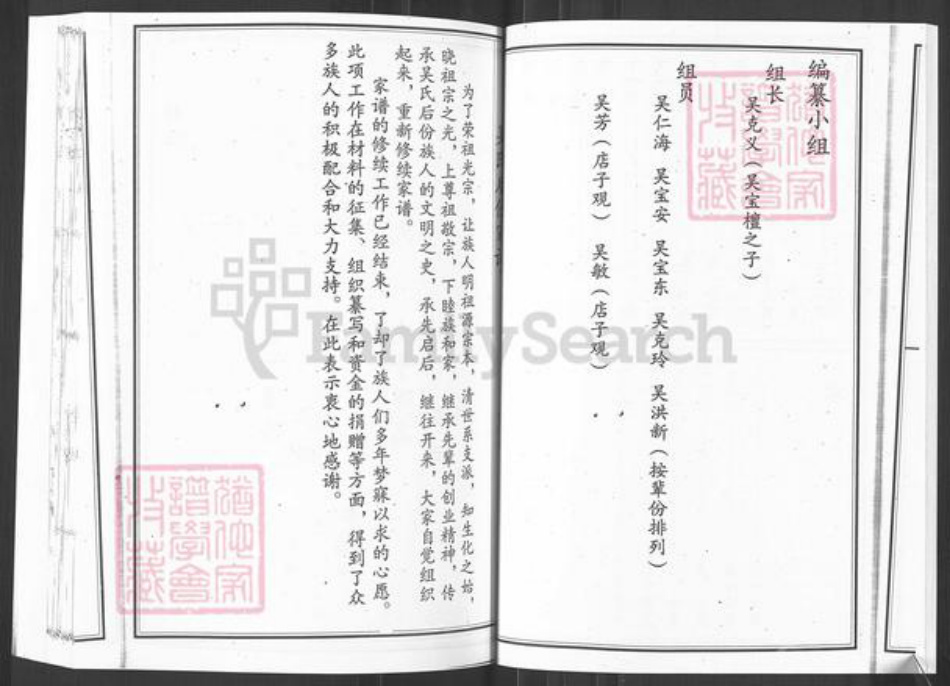 编纂小组
组长
吴克义（吴宝檀之子）
组员
吴仁海 吴宝安 吴宝东 吴克玲 吴洪新（按辈份排列）
吴芳（店子观） 吴敏（店子观）
为了荣祖光宗，让族人明祖源宗本，清世系支派，知生化之始，
晓祖宗之光，上尊祖敬宗，下睦族和家，继承先辈的创业精神，传
承吴氏后份族人的文明之史，承先启后，继往开来，大家自觉组织
起来，重新修续家谱。
家谱的修续工作已经结束，了却了族人们多年梦寐以求的心愿。
此项工作在材料的征集、组织纂写和资金的捐赠等方面，得到了众
多族人的积极配合和大力支持。在此表示衷心地感谢。
FamilySearch